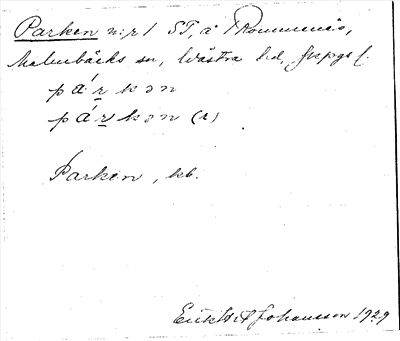 Parken nr 1 ST, å Krommenäs,
Malmbäcks sn, Västra hd, Jkpgs l.
párkən
párkən (r)
Parken, kb.
Johansson 1929